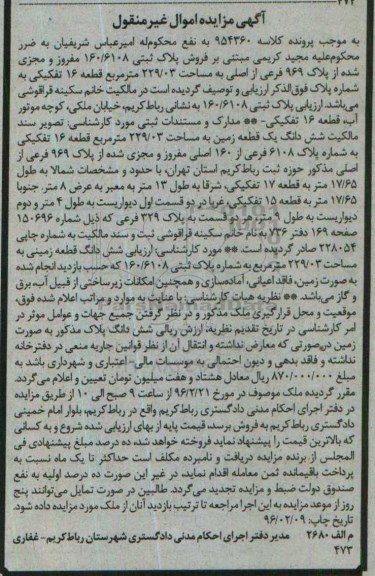 ۴۷۲
آگهی مزایده اموال غیرمنقول
به موجب پرونده کلاسه ۹۵۴۳۶۰ به نفع محکوم‌له امیرعباس شریفیان به ضرر
محکوم‌علیه مجید کریمی مبتنی بر فروش پلاک ثبتی ۱۶۰/۶۱۰۸ مفروز و مجزی
شده از پلاک ۹۶۹ فرعی از اصلی به مساحت ۲۲۹/۰۳ مترمربع قطعه ۱۶ تفکیکی به
شماره پلاک فوق‌الذکر ارزیابی و توصیف گردیده است در مالکیت خانم سکینه قراقوشی
می‌باشد. ارزیابی پلاک ثبتی ۱۶۰/۶۱۰۸ به نشانی رباط‌کریم، خیابان ملکی، کوچه موتور
آب، قطعه ۱۶ تفکیکی- ** مدارک و مستندات ثبتی مورد کارشناسی: تصویر سند
مالکیت شش دانگ یک قطعه زمین به مساحت ۲۲۹/۰۳ مترمربع قطعه ۱۶ تفکیکی
به شماره پلاک ۶۱۰۸ فرعی از ۱۶۰ اصلی مفروز و مجزی شده از پلاک ۹۶۹ فرعی از
اصلی مذکور حوزه ثبت رباط‌کریم استان تهران، با حدود و مشخصات شمالا به طول
۱۷/۶۵ متر به قطعه ۱۷ تفکیکی، شرقا به طول ۱۳ متر به معبر به عرض ۸ متر. جنوبا
۱۷/۶۵ متر به قطعه ۱۵ تفکیکی، غربا در دو قسمت اول دیواریست به طول ۴ متر و دوم
دیواریست به طول ۹ متر، هر دو قسمت به پلاک ۳۲۹ فرعی که ذیل شماره ۱۵۰۶۹۶
صفحه ۱۶۹ دفتر ۷۳۶ به نام خانم سکینه قراقوشی ثبت و سند مالکیت به شماره چاپی
۲۲۸۰۵۴ صادر گردیده است. ** مورد کارشناسی: ارزیابی شش دانگ قطعه زمینی به
مساحت ۲۲۹/۰۳ مترمربع به شماره پلاک ثبتی ۱۶۰/۶۱۰۸ که حسب بازدید انجام شده
به صورت زمین، فاقد اعیانی، آماده‌سازی و همچنین امکانات زیرساختی از قبیل آب، برق
و گاز می‌باشد. ** نظریه هیات کارشناسی: با عنایت به موارد و مراتب اعلام شده فوق،
موقعیت و محل قرارگیری ملک مذکور و در نظر گرفتن جمیع جهات و عوامل موثر در
امر کارشناسی در تاریخ تقدیم نظریه، ارزش ریالی شش دانگ پلاک مذکور به صورت
زمین درصورتی که معارض نداشته و انتقال آن از نظر قوانین جاریه منعی در دفترخانه
نداشته و فاقد بدهی و دیون احتمالی به موسسات مالی- اعتباری و شهرداری باشد به
مبلغ ۸۷۰/۰۰۰/۰۰۰ ریال معادل هشتاد و هفت میلیون تومان تعیین و اعلام می‌گردد.
مقرر گردیده ملک موصوف در مورخ ۹۶/۲/۲۱ از ساعت ۹ صبح الی ۱۰ از طریق مزایده
در دفتر اجرای احکام مدنی دادگستری رباط‌کریم واقع در رباط‌کریم، بلوار امام خمینی
دادگستری رباط‌کریم به فروش برسد، قیمت پایه از بهای ارزیابی شده شروع و به کسانی
که بالاترین قیمت را پیشنهاد نماید فروخته خواهد شد، ده درصد مبلغ پیشنهادی فی
المجلس از برنده مزایده دریافت و نامبرده مکلف است حداکثر تا یک ماه نسبت به
پرداخت باقیمانده ثمن معامله اقدام نماید، در غیر این صورت ده درصد اولیه به نفع
صندوق دولت ضبط و مزایده تجدید می‌گردد. طالبین در صورت تمایل می‌توانند پنج
روز از موعد مزایده به این اجرا مراجعه تا ترتیب بازدید آنان از ملک مورد مزایده داده شود.
تاریخ چاپ: ۹۶/۰۲/۰۹
م الف ۲۶۸۰ مدیر دفتر اجرای احکام مدنی دادگستری شهرستان رباط‌کریم- غفاری
۴۷۳